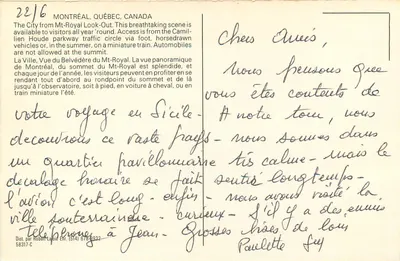 22/6
MONTRÉAL, QUÉBEC, CANADA
The City from Mt-Royal Look-Out. This breathtaking scene is
available to visitors all year 'round. Access is from the Camil-
lien Houde parkway traffic circle via foot, horsedrawn
vehicles or, in the summer, on a miniature train. Automobiles
are not allowed at the summit.
La Ville, Vue du Belvédère du Mt-Royal. La vue panoramique
de Montréal, du sommet du Mt-Royal est splendide, et
chaque jour de l'année, les visiteurs peuvent en profiter en se
rendant tout d'abord au rondpoint du sommet et de là
jusqu'à l'observatoire, soit à pied, en voiture à cheval, ou en
train miniature l'été.
Chers Amis,
nous pensons que
vous êtes contents de
votre voyage en Sicile - A notre tour, nous
découvrons ce vaste pays - nous sommes dans
un quartier pavillonnaire très calme - mais le
décalage horaire se fait sentir longtemps -
l'avion c'est long - enfin - nous avons visité la
ville souterraine - curieux - S'il y a des ennuis
téléphonez à Jean - Grosses bises de loin
Paulette Guy